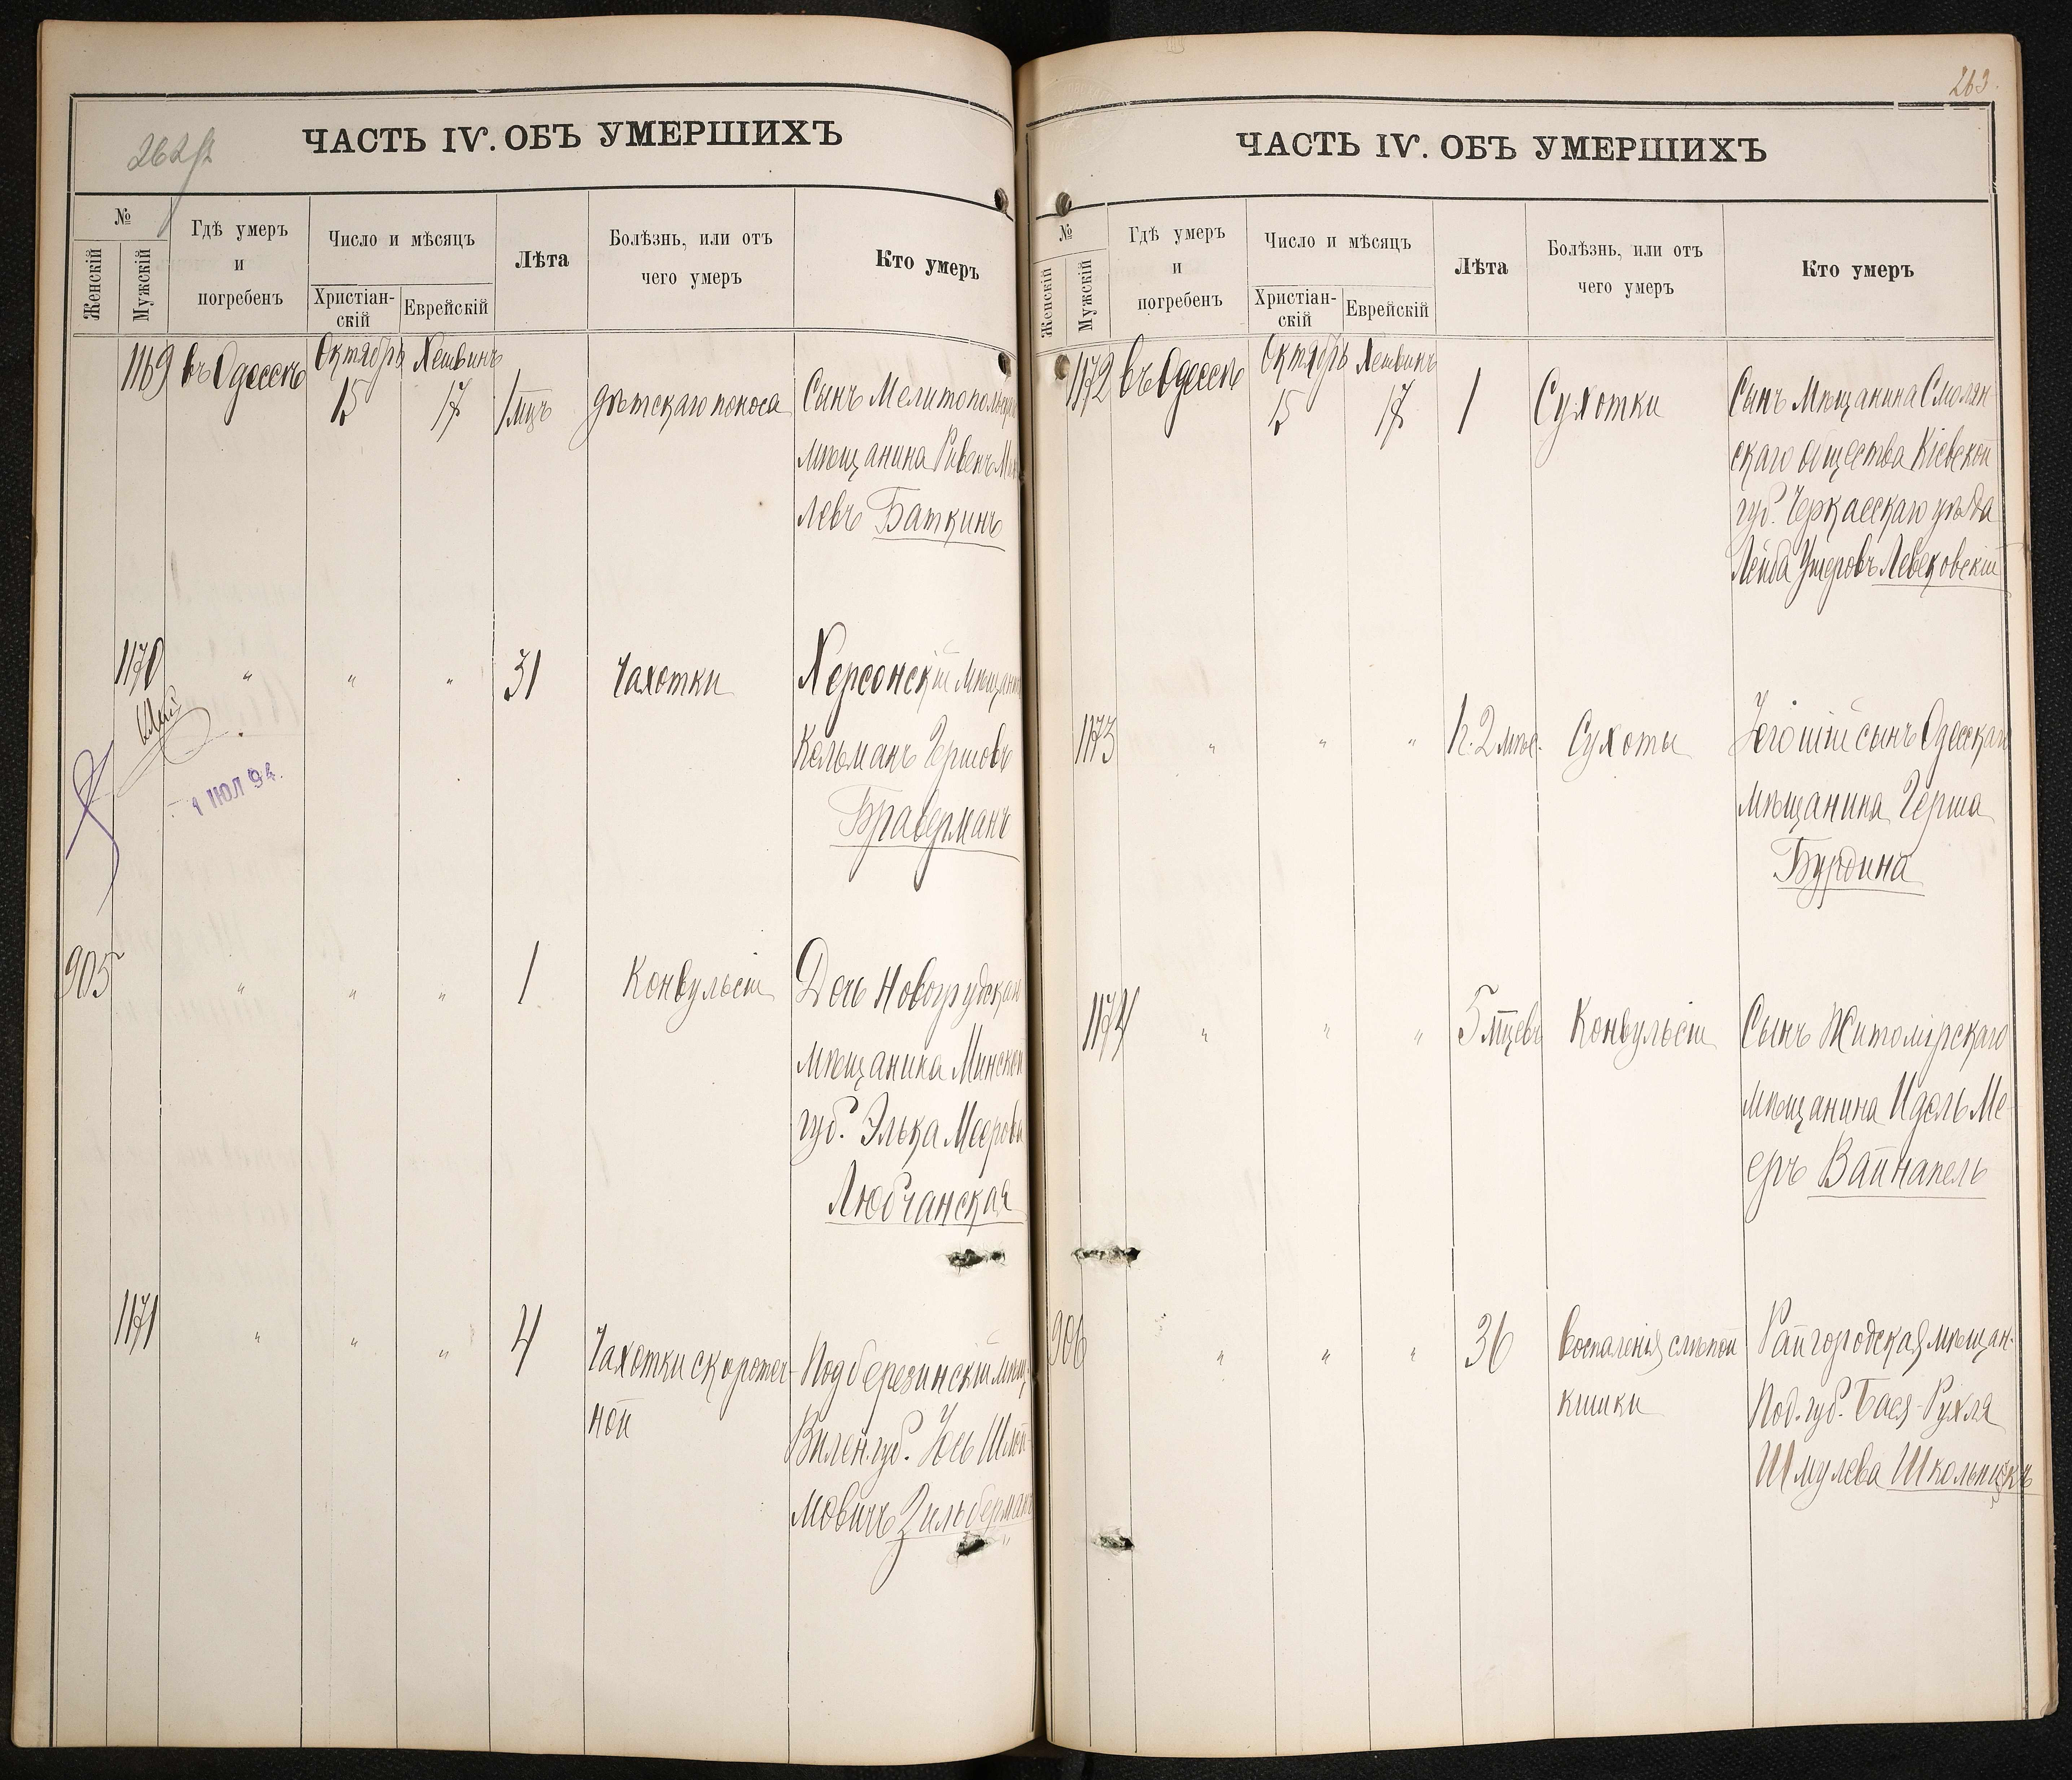 262/2
ЧАСТЬ IV. ОБЪ УМЕРШИХЪ
№
Женскій
Мужскій
Гдѣ умеръ
и
погребенъ
Число и мѣсяцъ
Христіан-
скій
Еврейскій
Лѣта
Болѣзнь, или отъ
чего умеръ
Кто умеръ
1169 въ Одессѣ Октябрь 15 Хешвинъ 17 1 мцъ дѣтскаго поноса Сынъ Мелитопольскаго
мѣщанина Рувенъ
левъ Баткинъ
1170 " " " 31 Чахотки Херсонскій мѣщанинъ
Кельманъ Гершовъ
Браверманъ
1 ИЮЛ 94.
905 " " " 1 Конвульсіи Дочь Новогрудскаго
мѣщанина Минской
губ. Элька Меерова
Любчанская
1171 " " " 4 Чахотки скоротеч- Подберезинскій мѣщ.
ной Вилен. губ. Іось Шлой-
мовичъ Зильберманъ
263.
ЧАСТЬ IV. ОБЪ УМЕРШИХЪ
№
Женскій
Мужскій
Гдѣ умеръ
и
погребенъ
Число и мѣсяцъ
Христіан-
скій
Еврейскій
Лѣта
Болѣзнь, или отъ
чего умеръ
Кто умеръ
1172 въ Одессѣ Октябрь 15 Хешвинъ 17 1 Сухотки Сынъ Мѣщанина Смолян-
скаго общества Кіевской
губ. Черкасскаго уѣзда
Лейба Умеровъ Левековскій
1173 " " " 1 г. 2 мѣс. Сухоты Іегошіи сынъ Одесскаго
мѣщанина Герша
Бурдина
1174 " " " 5 мцевъ Конвульсіи Сынъ Житомірскаго
мѣщанина Идель Ме-
еръ Вайнапель
906 " " " 36 воспаленія слѣпой Райгородская мѣщан.
кишки Под. губ. Бася-Рухля
Шмулева Школьникъ